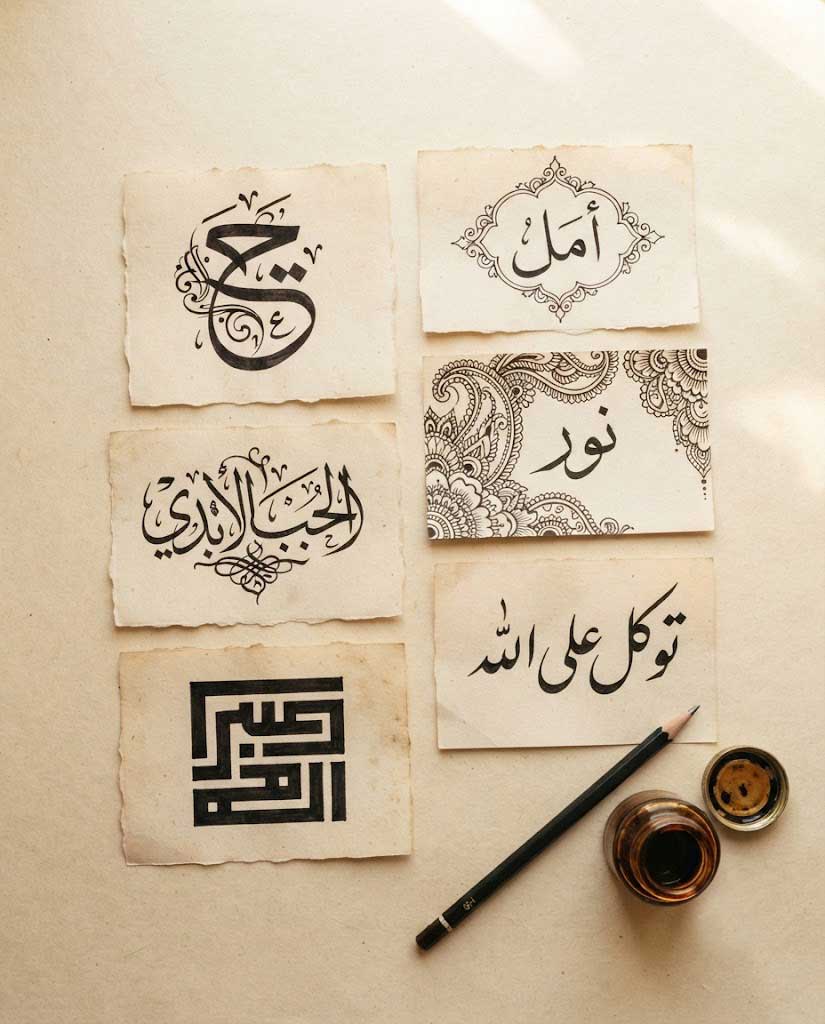 أمَلُ
نور
الحُب الأبدي
توكل على الله